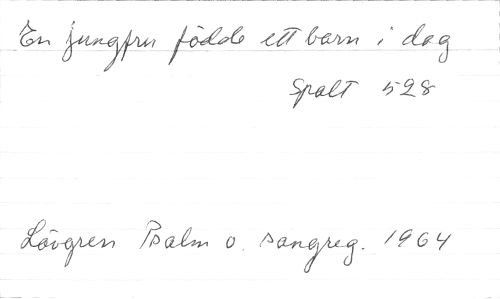 En jungfru födde ett barn i dag
Spalt 528
Lövgren Psalm o. sångreg. 1964